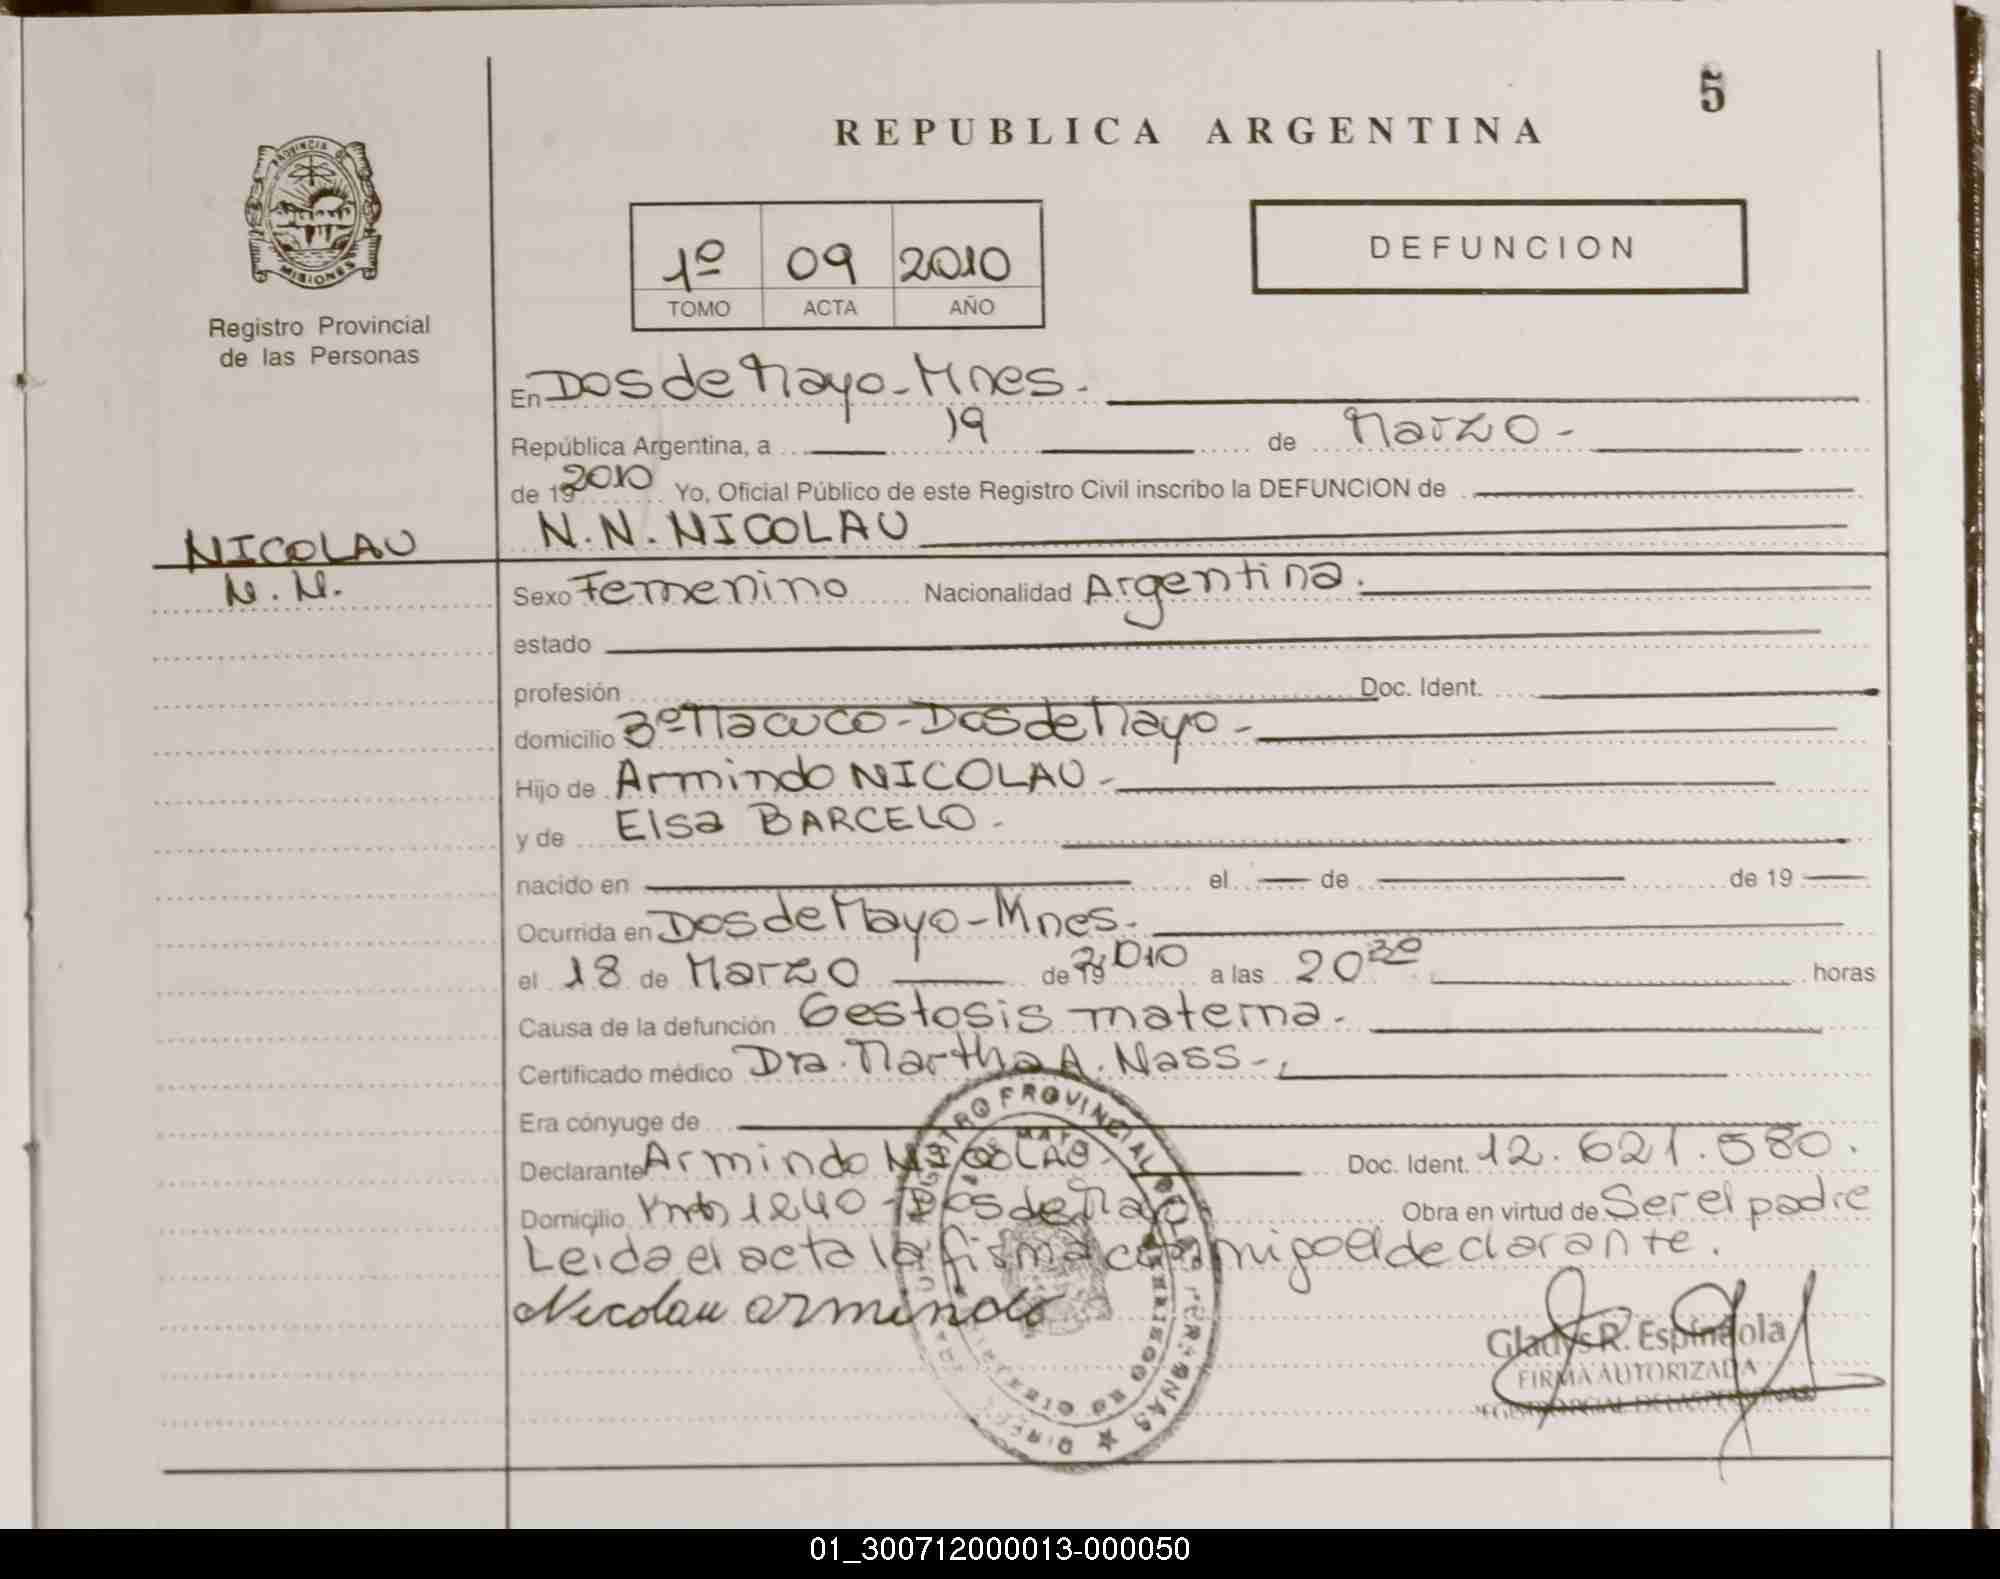 5
REPUBLICA ARGENTINA
PROVINCIA DE
MISIONES
Registro Provincial
de las Personas
1º 09 2010
TOMO ACTA AÑO
DEFUNCION
En Dos de Mayo - Mnes.
República Argentina, a 19 de Marzo -
de 19 2010 Yo, Oficial Público de este Registro Civil inscribo la DEFUNCION de
N. N. NICOLAU
NICOLAU
N. N.
Sexo Femenino Nacionalidad Argentina.
estado
profesión Doc. Ident.
domicilio 3º Macuco - Dos de Mayo -
Hijo de Armindo NICOLAU -
y de Elsa BARCELO -
nacido en el de de 19
Ocurrida en Dos de Mayo - Mnes.
el 18 de Marzo de 19 2010 a las 20 30 horas
Causa de la defunción Gestosis materna -
Certificado médico Dra. Martha A. Nass -
Era cónyuge de
Declarante Armindo NICOLAU Doc. Ident. 12.621.580.
Domicilio 1240 - Dos de Mayo Obra en virtud de Ser el padre
Leida el acta la firma conmigo el declarante.
Nicolau armindo
REGISTRO PROVINCIAL DE LAS PERSONAS
DOS DE MAYO
Gladys R. Espindola
FIRMA AUTORIZADA
01_300712000013-000050